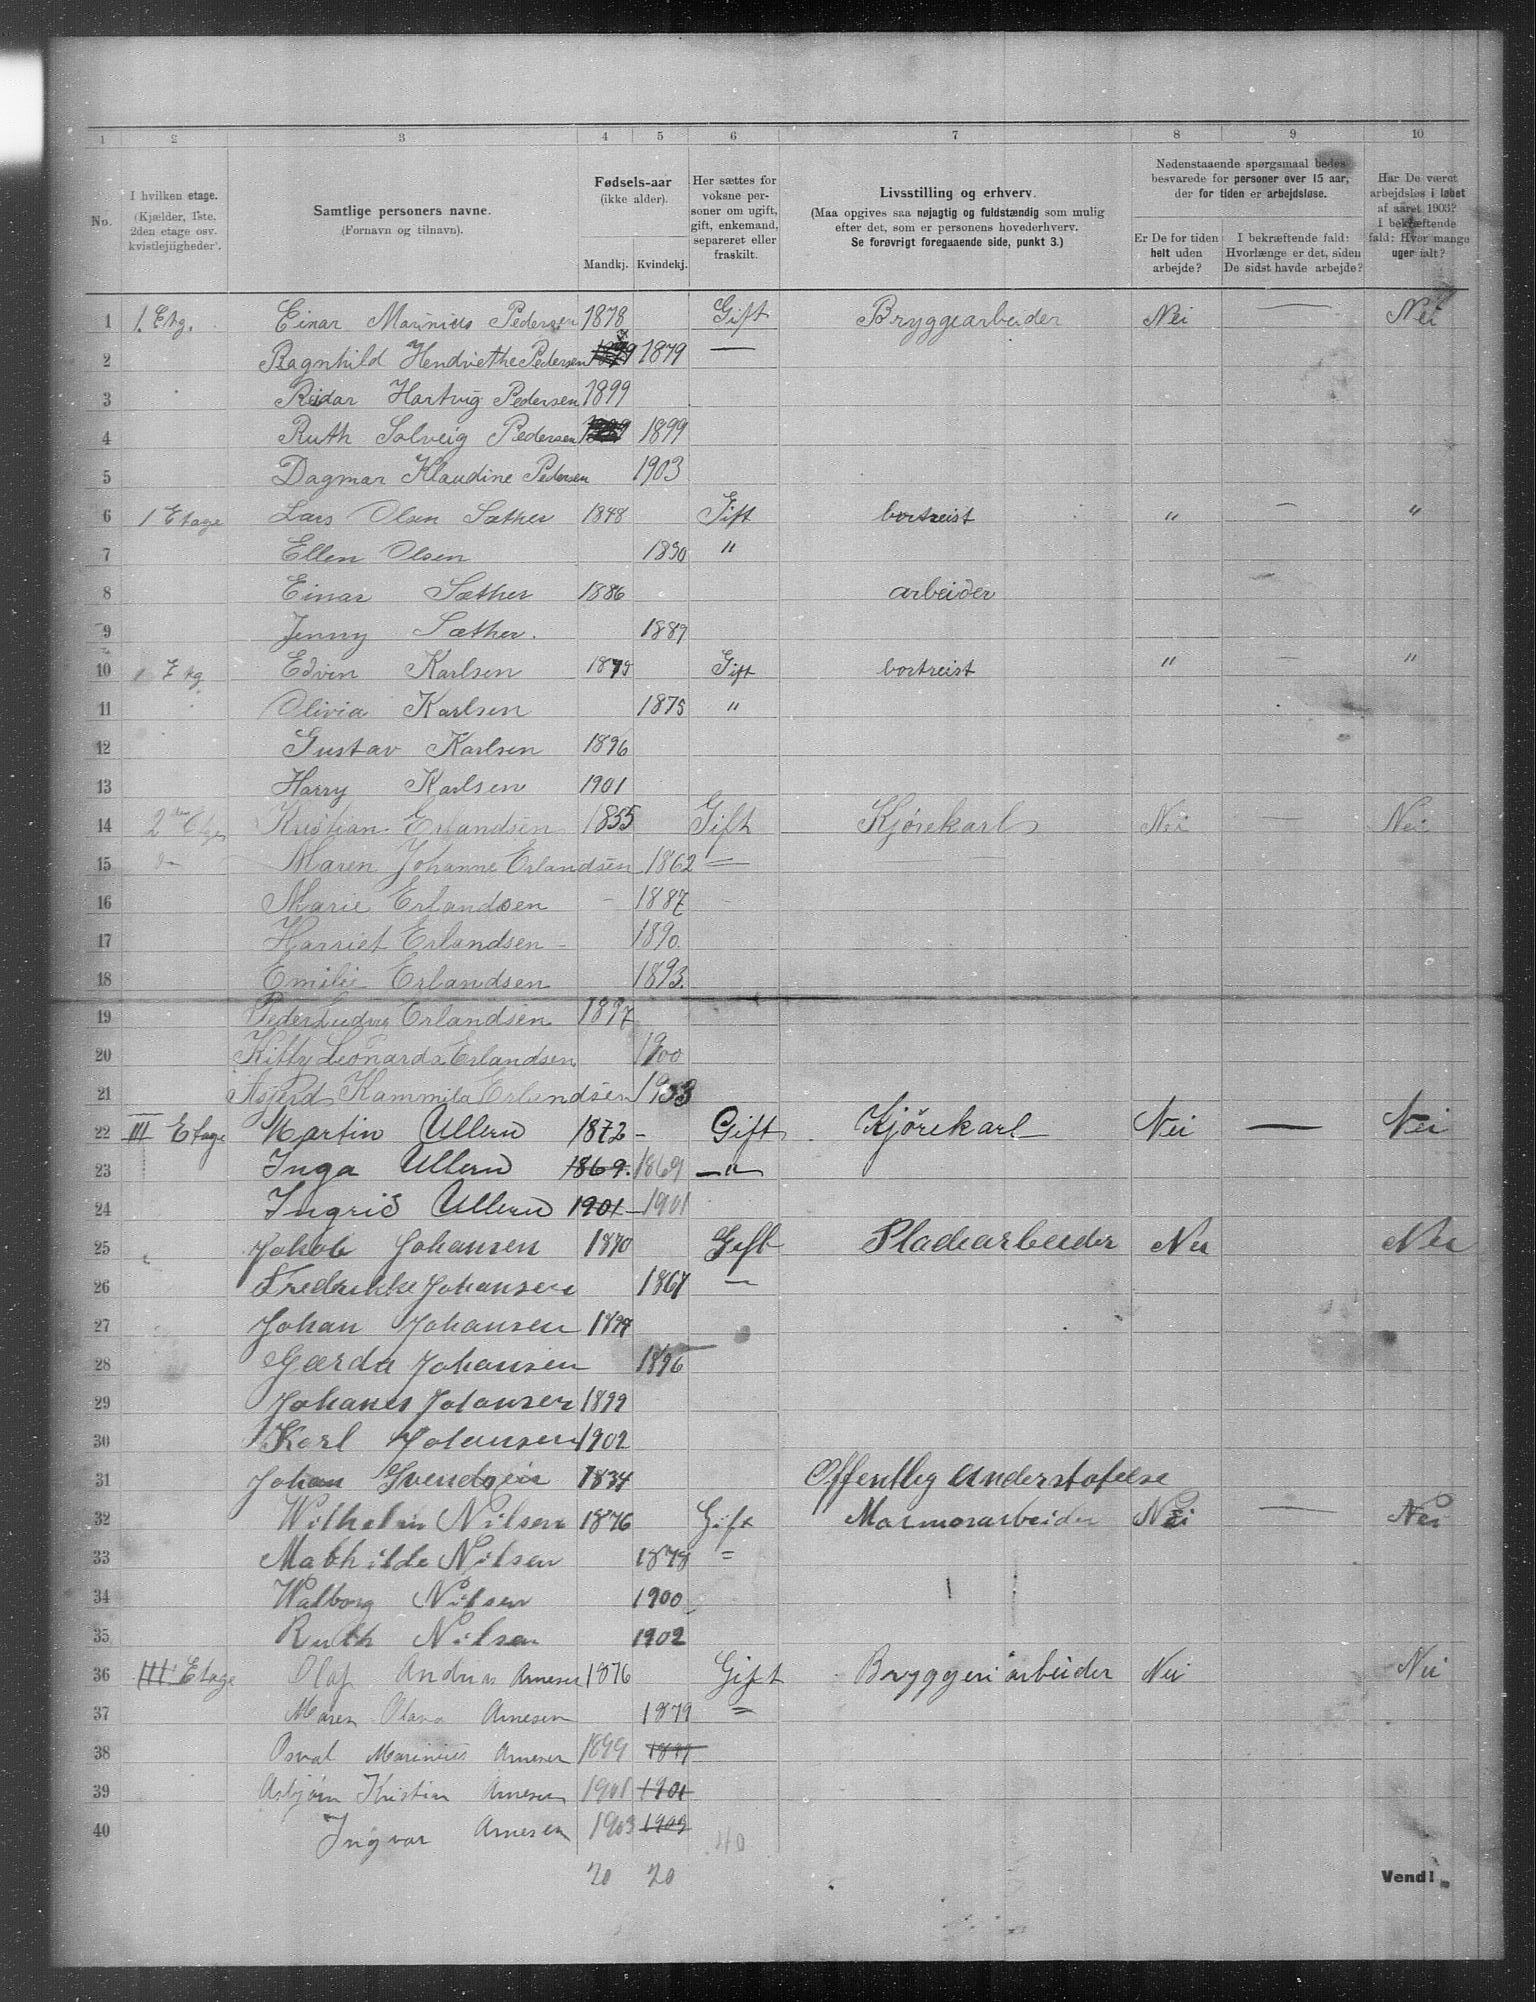 1 2 3 4 5 6 7 8 9 10
No.
I hvilken etage.
(Kjælder, 1ste, 2den etage osv. kvistleiligheder).
Samtlige personers navne.
(Fornavn og tilnavn).
Fødsels-aar
(ikke alder).
Mandkj. Kvindekj.
Her sættes for voksne personer om ugift, gift, enkemand, separeret eller fraskilt.
Livsstilling og erhverv.
(Maa opgives saa nøjagtig og fuldstændig som mulig efter det, som er personens hovederhverv.
Se forøvrigt foregaaende side, punkt 3.)
Nedenstaaende spørgsmaal bedes besvarede for personer over 15 aar, der for tiden er arbejdsløse.
Er De for tiden helt uden arbejde?
I bekræftende fald: Hvorlænge er det, siden De sidst havde arbejde?
Har De været arbejdsløs i løbet af aaret 1903? I bekræftende fald: Hvor mange uger ialt?
1 1. Etg. Einar Marinius Pedersen 1878 Gift Bryggearbeider Nei — Nei
2 Ragnhild Hendriethe Pedersen 1879 —
3 Reidar Hartvig Pedersen 1899
4 Ruth Solveig Pedersen 1899
5 Dagmar Klaudine Pedersen 1903
6 1 Etage Lars Olsen Sæther 1848 Gift bortreist " — "
7 Ellen Olsen 1850 "
8 Einar Sæther 1886 arbeider
9 Jenny Sæther. 1889
10 Etg Edvin Karlsen 1875 Gift bortreist " — "
11 Olivia Karlsen 1875 "
12 Gustav Karlsen 1896
13 Harry Karlsen 1901
14 2den Etage Kristian Erlandsen 1855 Gift Kjørekarl Nei — Nei
15 Maren Johanne Erlandsen 1862 —
16 Marie Erlandsen 1887
17 Harriet Erlandsen 1890.
18 Emilie Erlandsen 1893.
19 Peder Ludvig Erlandsen 1897
20 Kitty Leonarda Erlandsen 1900
21 Kammila Erlandsen 1903
22 III Etage Martin Ullern 1872 Gift Kjørekarl Nei — Nei
23 Inga Ullern 1869. 1869 —"—
24 Ingrid Ullern 1901 1901
25 Jakob Johansen 1870 Gift Pladearbeider Nei Nei
26 Fredrikke Johansen 1867 —
27 Johan Johansen
28 Gærda Johansen 1896
29 Johanes Johansen 1899
30 Karl Johansen 1902
31 Johan Svendsen 1834 Offentlig understøtelse
32 Wilhelm Nilsen 1876 Gift Marmorarbeider Nei — Nei
33 Mathilde Nilsen 1878 "
34 Walborg Nilsen 1900
35 Ruth Nilsen 1902
36 III Etage Olaf Andreas Arnesen 1876 Gift Bryggeriarbeider Nei Nei
37 Maren Olava Arnesen 1879 "
38 Osval Marinius Arnesen 1899 1899
39 Asbjørn Kristian Arnesen 1901 1901
40 Ingvar Arnesen 1903 1903
40
20 20
Vend!